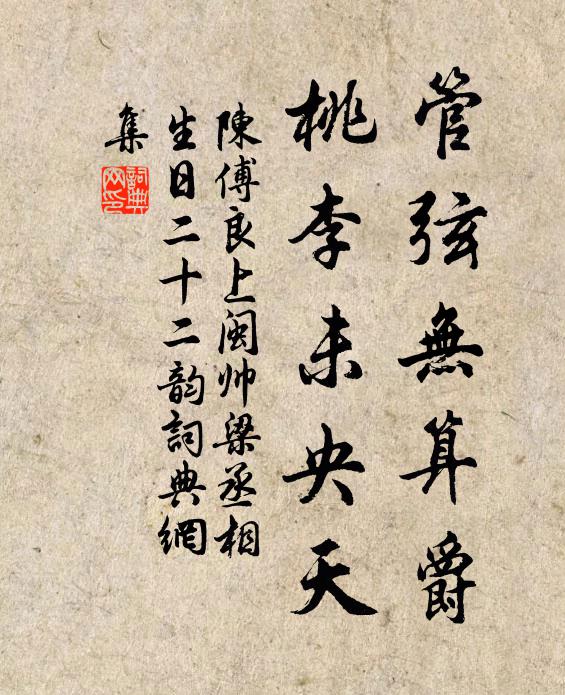 管弦無算爵
桃李未央天
陳傅良上闽帅梁丞相
生日二十二韵詞典網
集
詞典网印